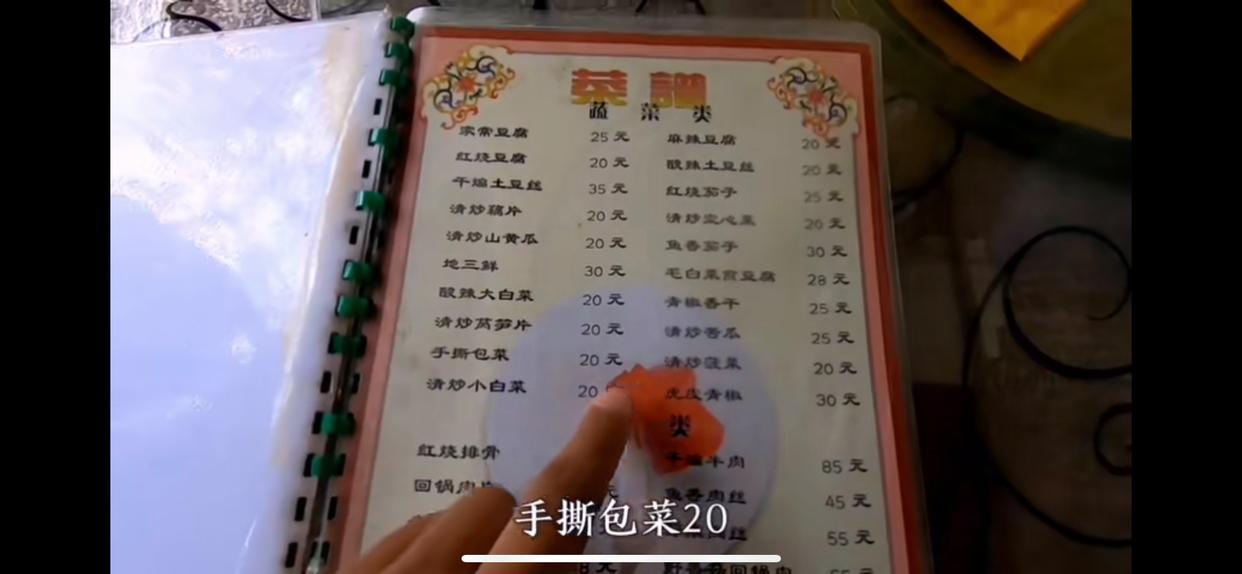 菜譜
蔬菜类
家常豆腐 25元 麻辣豆腐 20元
红烧豆腐 20元 酸辣土豆丝 20元
干煸土豆丝 35元 红烧茄子 25元
清炒藕片 20元 清炒空心菜 20元
清炒山黄瓜 20元 鱼香茄子 30元
地三鲜 30元 毛白菜煎豆腐 28元
酸辣大白菜 20元 青椒香干 25元
清炒莴笋片 20元 清炒苦瓜 25元
手撕包菜 20元 清炒菠菜 20元
清炒小白菜 20 虎皮青椒 30元
类
红烧排骨 干煸牛肉 85元
回锅肉 鱼香肉丝 45元
肉丝 55元
回锅肉
手撕包菜20